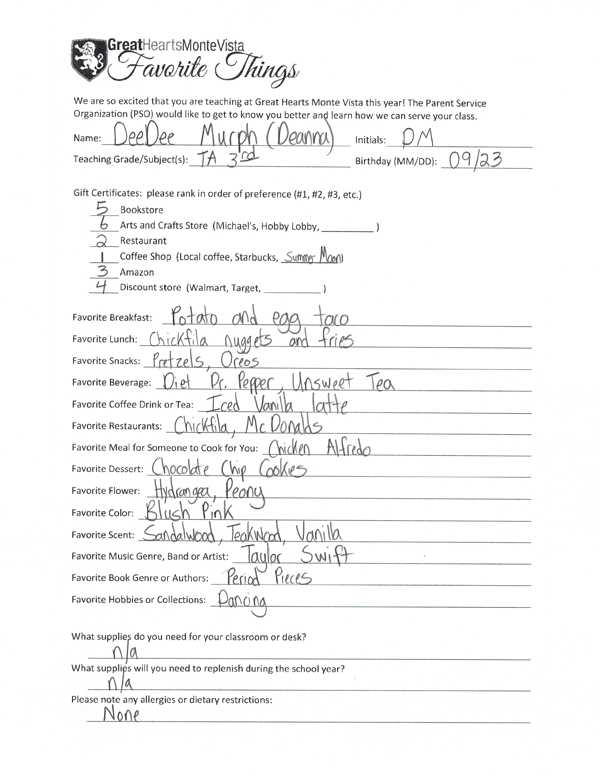 GreatHeartsMonteVista
Favorite Things
We are so excited that you are teaching at Great Hearts Monte Vista this year! The Parent Service
Organization (PSO) would like to get to know you better and learn how we can serve your class.
Name: DeeDee Murph (Deanna) Initials: DM
Teaching Grade/Subject(s): TA 3rd Birthday (MM/DD): 09/23
Gift Certificates: please rank in order of preference (#1, #2, #3, etc.)
5 Bookstore
6 Arts and Crafts Store (Michael's, Hobby Lobby, __________ )
2 Restaurant
1 Coffee Shop (Local coffee, Starbucks, Summer Moon)
3 Amazon
4 Discount store (Walmart, Target, __________ )
Favorite Breakfast: Potato and egg taco
Favorite Lunch: Chickfila nuggets and fries
Favorite Snacks: Pretzels, Oreos
Favorite Beverage: Diet Dr. Pepper, Unsweet Tea
Favorite Coffee Drink or Tea: Iced Vanilla latte
Favorite Restaurants: Chickfila, McDonalds
Favorite Meal for Someone to Cook for You: Chicken Alfredo
Favorite Dessert: Chocolate Chip Cookies
Favorite Flower: Hydrangea, Peony
Favorite Color: Blush Pink
Favorite Scent: Sandalwood, Teakwood, Vanilla
Favorite Music Genre, Band or Artist: Taylor Swift
Favorite Book Genre or Authors: Period Pieces
Favorite Hobbies or Collections: Dancing
What supplies do you need for your classroom or desk?
n/a
What supplies will you need to replenish during the school year?
n/a
Please note any allergies or dietary restrictions:
None